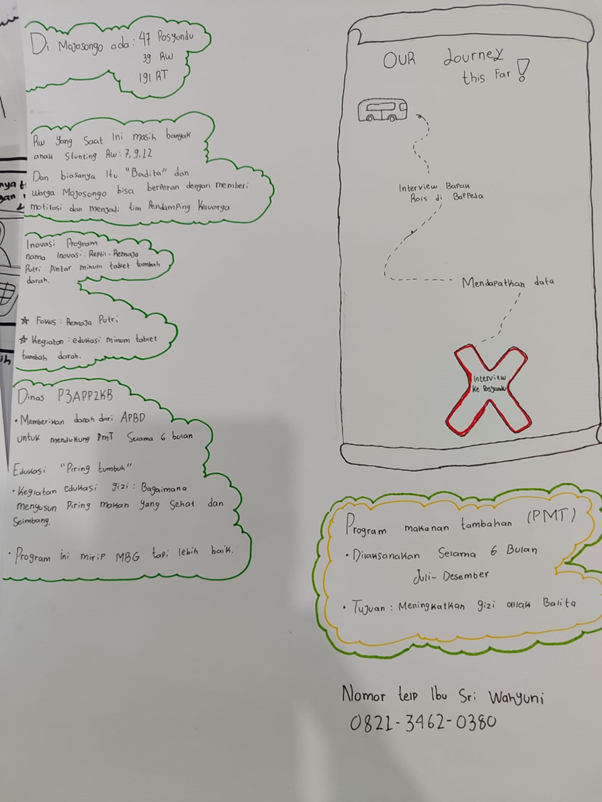 Di Mojosongo ada: 47 Posyandu
39 RW
191 RT
RW yang Saat ini masih banyak
anak Stunting RW: 7, 9, 12
Dan biasanya Itu "Badita" dan
Warga Mojosongo bisa berperan dengan memberi
motifasi dan menjadi tim Pendamping Keluarga
Inovasi Program
nama Inovasi: Repsil: Remaja
Putri Pintar minum tablet tambah
darah.
☆ Fokus: Remaja Putri
☆ Kegiatan: edukasi minum tablet
tambah darah.
Dinas P3APP2KB
• Memberikan danah dari APBD
untuk mendukung PMT Selama 6 bulan
Edukasi "Piring tumbuh"
• Kegiatan edukasi gizi: Bagaimana
menyusun Piring makan yang Sehat dan
Seimbang.
• Program ini mirip MBG tapi lebih baik.
OUR Journey
this Far!
Interview Bapak
Rois di Bappeda
Mendapatkan data
Interview
Ke Posyandu
Program makanan tambahan (PMT)
• Dilaksanakan Selama 6 Bulan
Juli - Desember
• Tujuan: Meningkatkan gizi anak Balita
Nomor telp Ibu Sri Wahyuni
0821-3462-0380